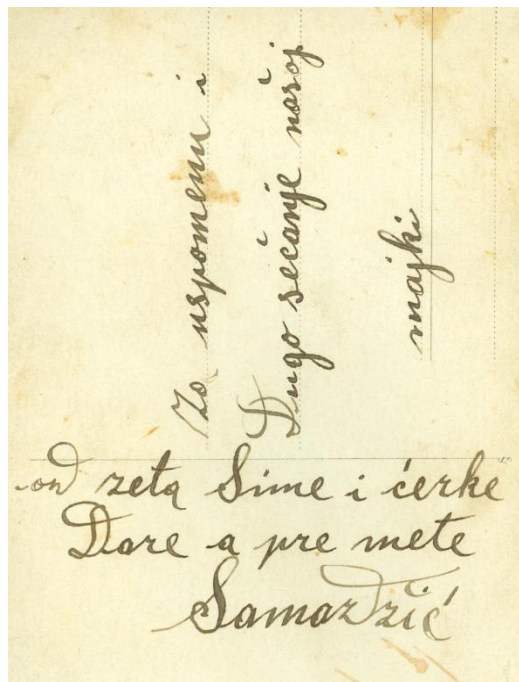 Za uspomenu i
Dugo sećanje našoj
majki
od zeta Sime i ćerke
Dare a pre mete
Samardžić